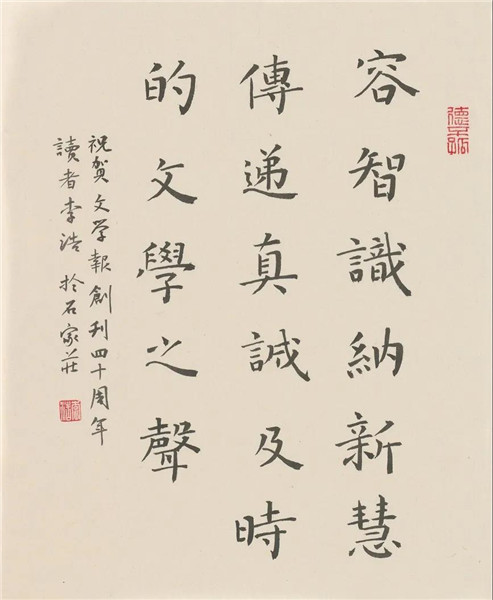 容智識納新慧
傳遞真誠及時
的文學之聲
祝贺文学報創刊四十周年
讀者李浩於石家莊